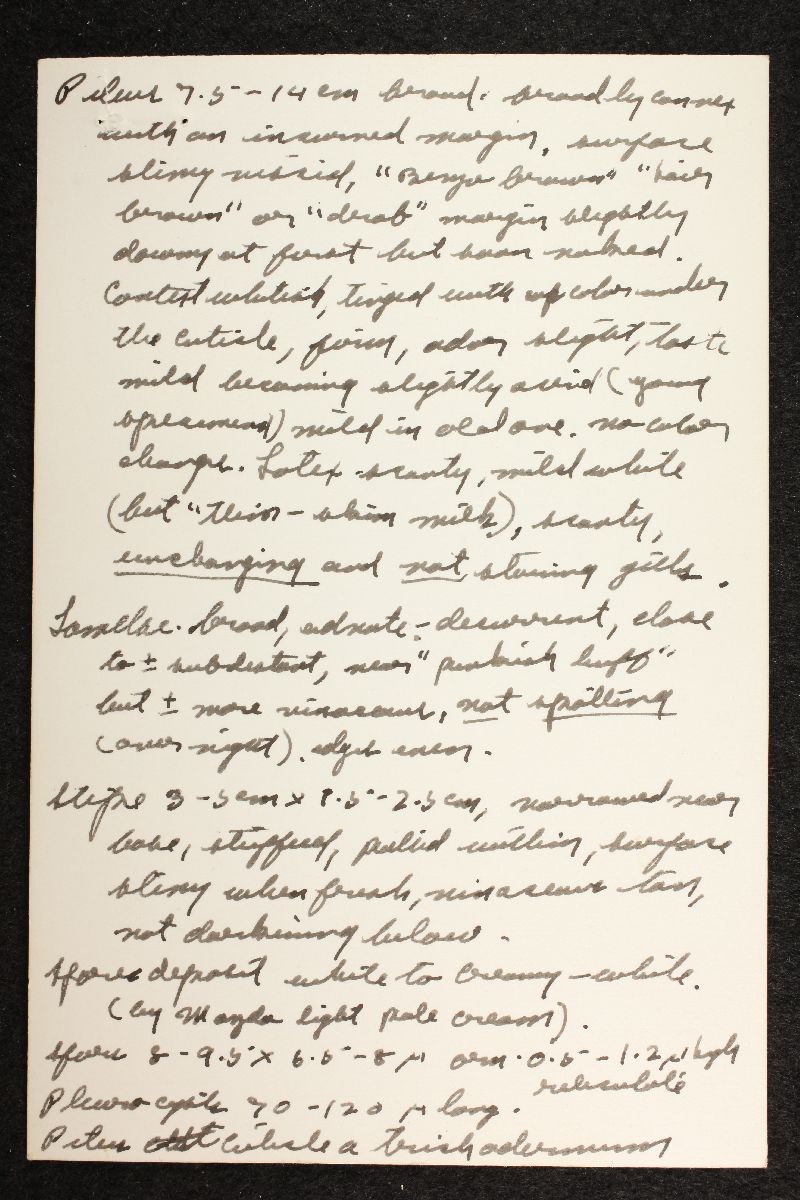 Pileus 7.5-14 cm broad. broadly convex
with an incurved margin, surface
slimy viscid, "Benzo brown" "hair
brown" or "drab" margin slightly
downy at first but soon naked.
Context whitish, tinged with cap color under
the cuticle, firm, odor slight, taste
mild becoming slightly acrid (young
specimens) mild in old one. no color
change. Latex scanty, mild white
(but "thin-skim milk), scanty,
unchanging and not staining gills.
Lamellae. broad, adnate-decurrent, close
to ± subdistant, near "pinkish buff"
but ± more vinaceous, not spotting
(over night). edges even.
Stipe 3-5 cm x 1.5-2.5 cm, narrowed near
base, stuffed, pallid within, surface
slimy when fresh, vinaceous tan,
not darkening below.
Spore deposit white to creamy-white.
(by Mazda light pale cream).
Spores 8-9.5 x 6.5-8 µ orn. 0.5-1.2 µ high
reticulate
Pleurocysts 70-120 µ long.
Pileus cuticle a trichodermium